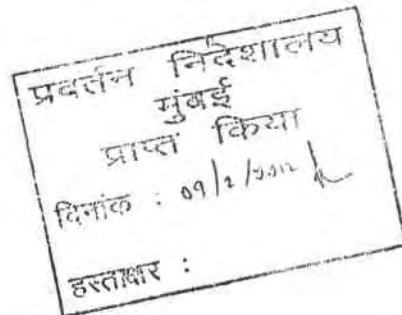 प्रवर्तन निदेशालय
मुंबई
प्राप्त किया
दिनांक : 09/2/2012
हस्ताक्षर :